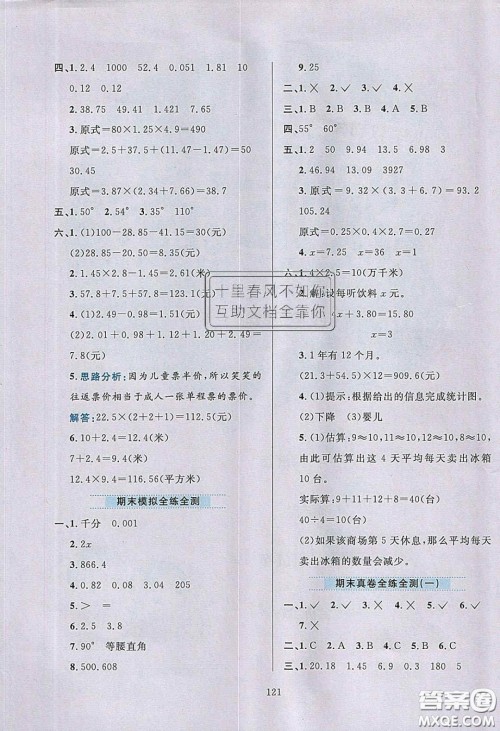 四、1. 2.4 1000 52.4 0.051 1.81 10
0.12 0.12
2. 38.75 40.91 7.95 187.5
3. 原式=80×1.25×4.9=490
原式=2.5+37.5+(15.51-5.51)=50
30.45
原式=3.87×(2.3+6.9+0.8)=38.7
五、1. 50° 2. 54° 3. 35° 110°
六、1. (1)100-28.85-41.15=30(元)
(2)28.85-20.50=8.35(元)
2. 1.45×2.8-1.45=2.61(米)
3. 57.6×2.5+28.8=172.8(元)
4. (1)0.51+0.96=1.47(元)
(2)2.01+0.94+1+1.29+0.51+2.05
=7.8(元)
5. 思路分析:因为儿童票半价,所以笑笑的
往返票价相当于成人一张单程票的票价。
解答:22.5×(2+2+1)=112.5(元)
6. 10+2.4=12.4(米)
12.4×9.4=116.56(平方米)
期末模拟全练全测
一、1. 千分 0.001
2. 2x
3. 866.4
4. 0.32 0.08 2.45 3.15
5. > =
6. 2.5 3.8
7. 90° 等腰直角
8. 500.608
9. 25
二、1. × 2. ✓ 3. ✓ 4. ×
三、1. B 2. B 3. A 4. C 5. B
四、55° 60°
五、1. 2 50 9.94 13.5 6.98 3
2. 46.94 13.09 3927
3. 100.01
原式=9.32×(3.3+6.7)=93.2
105.24
原式=0.25×0.4×2.7=0.27
4. x= x=36 x=1
六、1. 4×2.5=10(万千米)
2. 解:设每听饮料 x 元。
x=3
3. 1 年有 12 个月。
(21.3+54.5)×12=909.6(元)
4. (1)提示:根据给出的信息完成统计图。
(2)下降 (3)婴儿
5. (1)估算:9≈10,11≈10,8≈10,12≈10,
由此可估算出这 4 天平均每天卖出冰箱
10 台。
实际算:9+11+8+12=40(台)
40÷4=10(台)
(2)如果该商场第 5 天休息,那么平均每天
卖出冰箱的数量会减少。
期末真卷全练全测(一)
一、1. ✓ 2. ✓ 3. × 4. × 5. ✓ 6. ✓
7. ×
二、1. C 2. C 3. A 4. B 5. A 6. A
三、1. 20.18 1.45 6.9 0.3 180 15.9
121
十里春风不如你
互助文档全靠你
答案圈
MXQE.COM